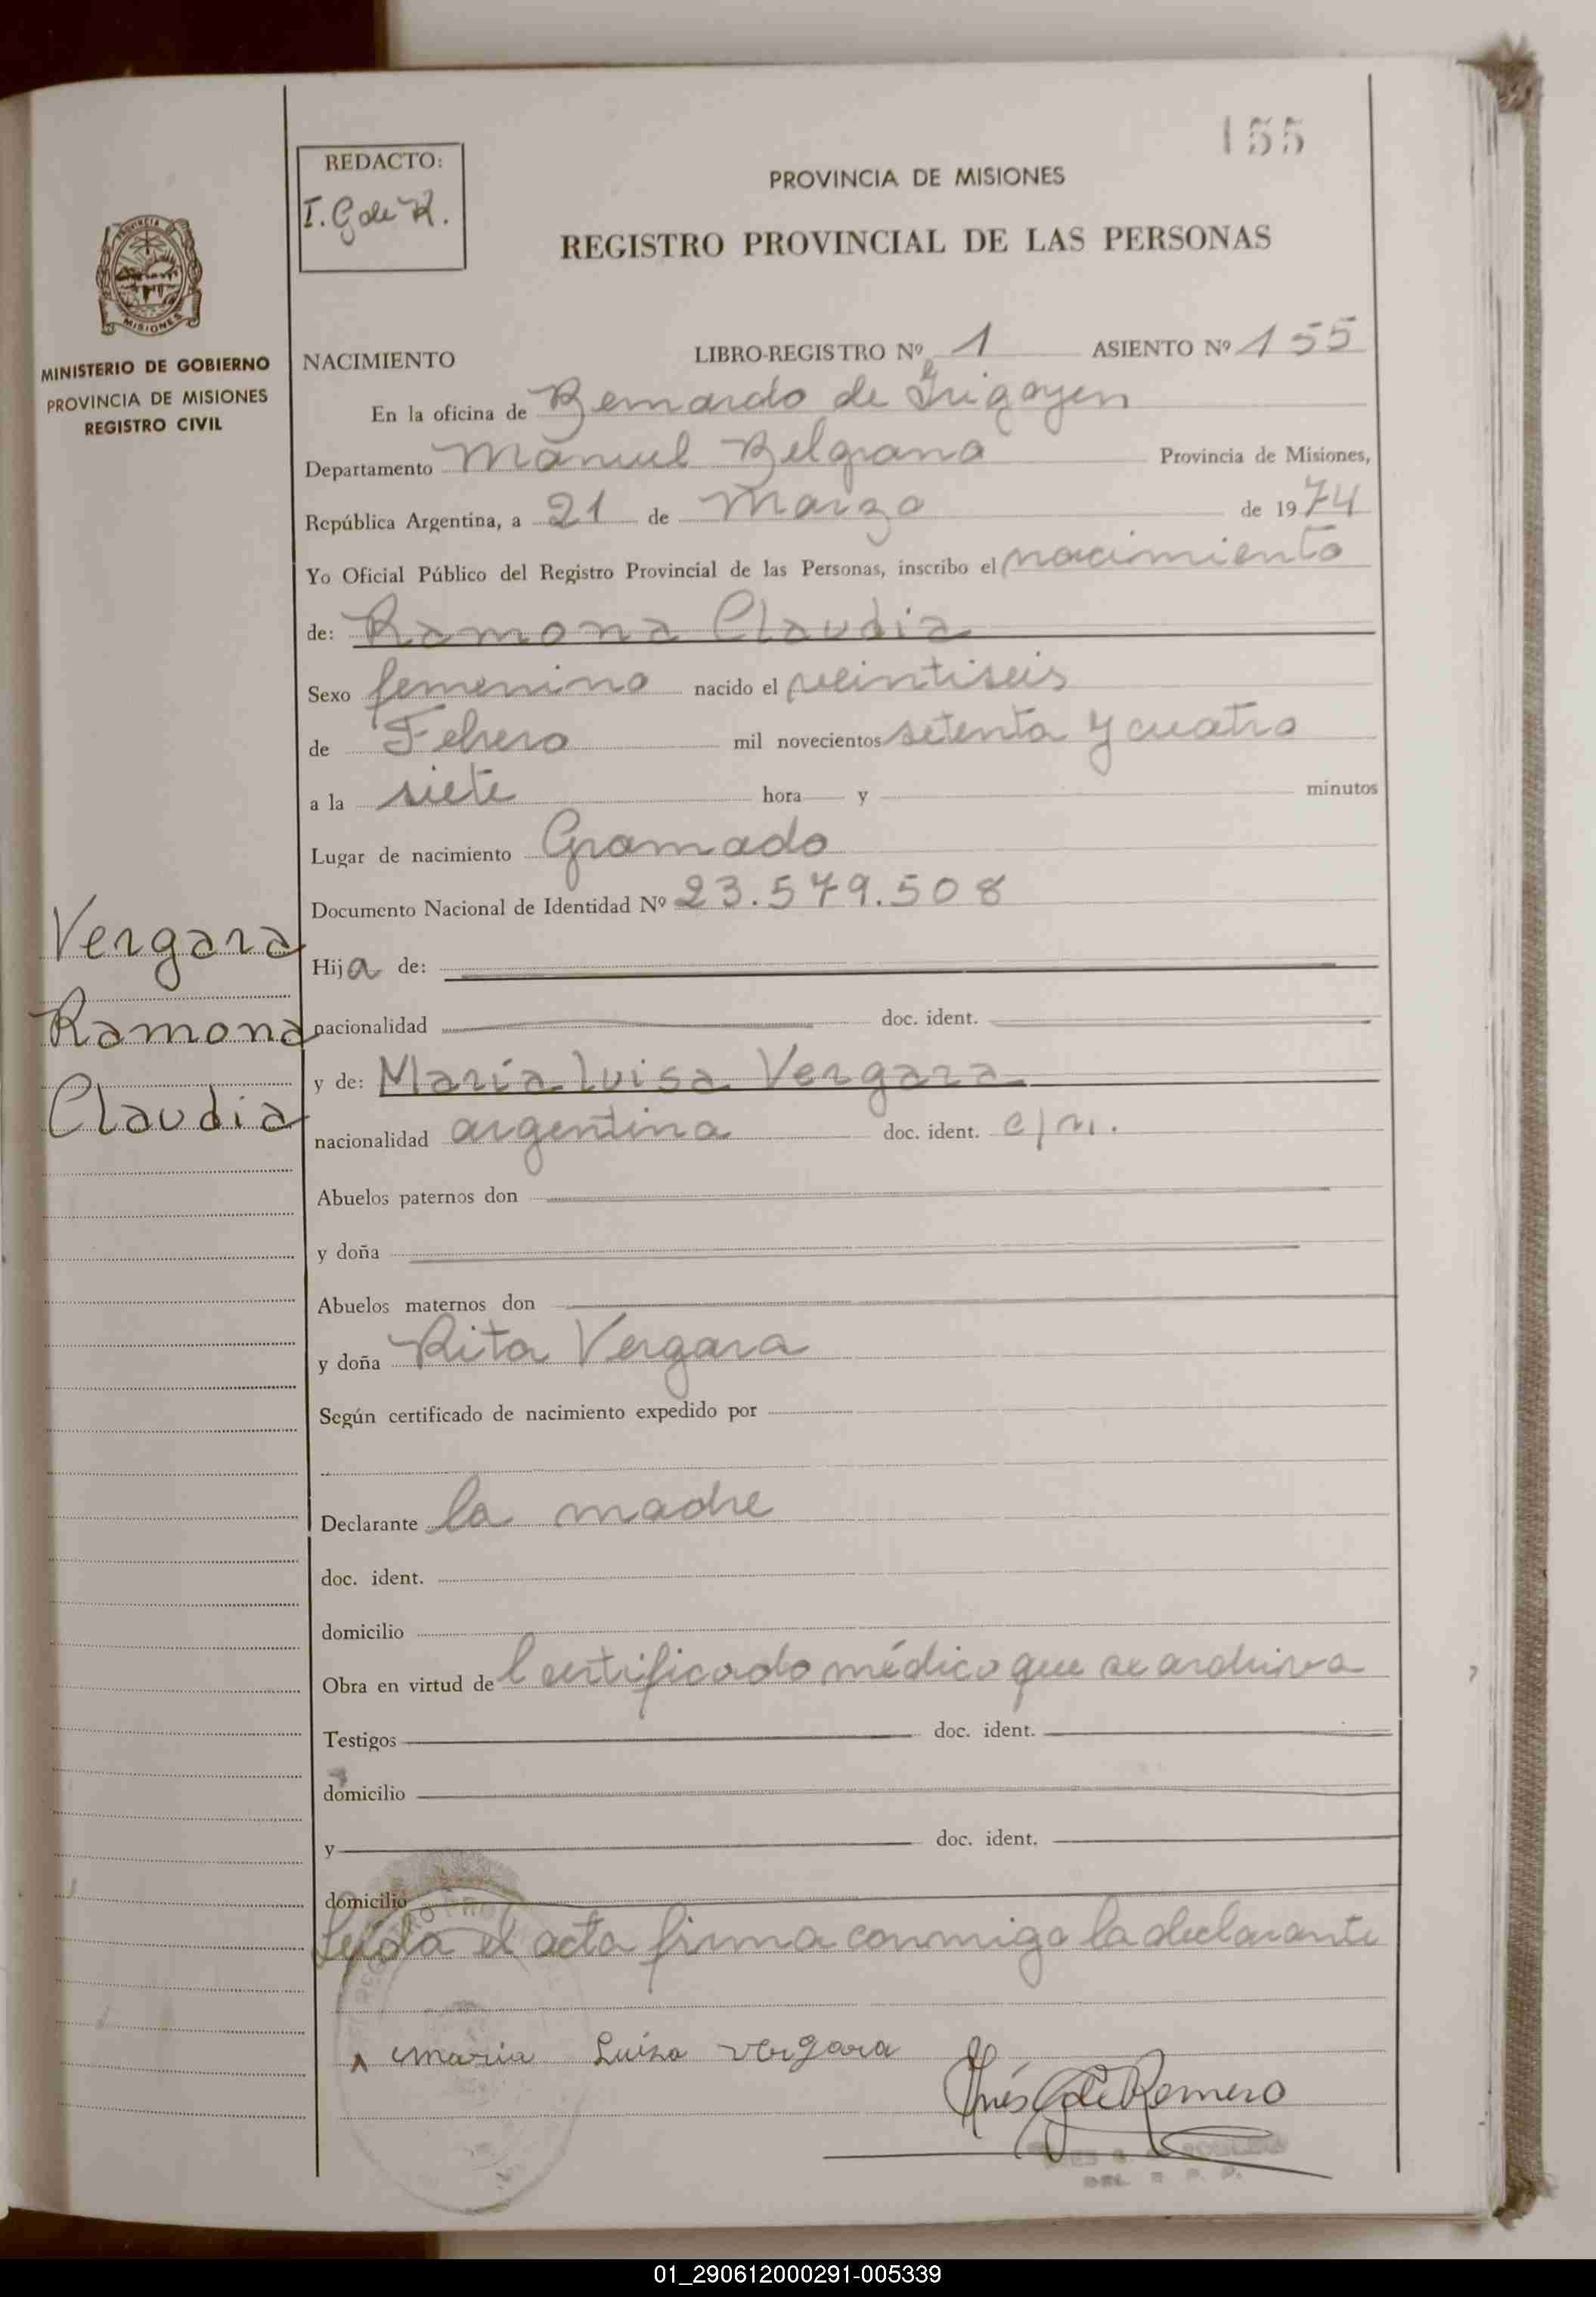 155
REDACTO:
I. G de R.
PROVINCIA DE MISIONES
REGISTRO PROVINCIAL DE LAS PERSONAS
MISIONES
MINISTERIO DE GOBIERNO
PROVINCIA DE MISIONES
REGISTRO CIVIL
NACIMIENTO LIBRO-REGISTRO Nº 1 ASIENTO Nº 155
En la oficina de Bernardo de Irigoyen
Departamento Manuel Belgrano Provincia de Misiones,
República Argentina, a 21 de Marzo de 1974
Yo Oficial Público del Registro Provincial de las Personas, inscribo el nacimiento
de: Ramona Claudia
Sexo femenino nacido el veintiseis
de Febrero mil novecientos setenta y cuatro
a la siete hora y minutos
Lugar de nacimiento Gramado
Documento Nacional de Identidad Nº 23.579.508
Vergara
Ramona
Claudia
Hija de:
nacionalidad doc. ident.
y de: María Luisa Vergara
nacionalidad argentina doc. ident. c/n.
Abuelos paternos don
y doña
Abuelos maternos don
y doña Rita Vergara
Según certificado de nacimiento expedido por
Declarante la madre
doc. ident.
domicilio
Obra en virtud del certificado médico que se archiva
Testigos doc. ident.
domicilio
y doc. ident.
domicilio
Leída el acta firma conmigo la declarante
maria Luisa vergara
Inés G de Romero
01_290612000291-005339